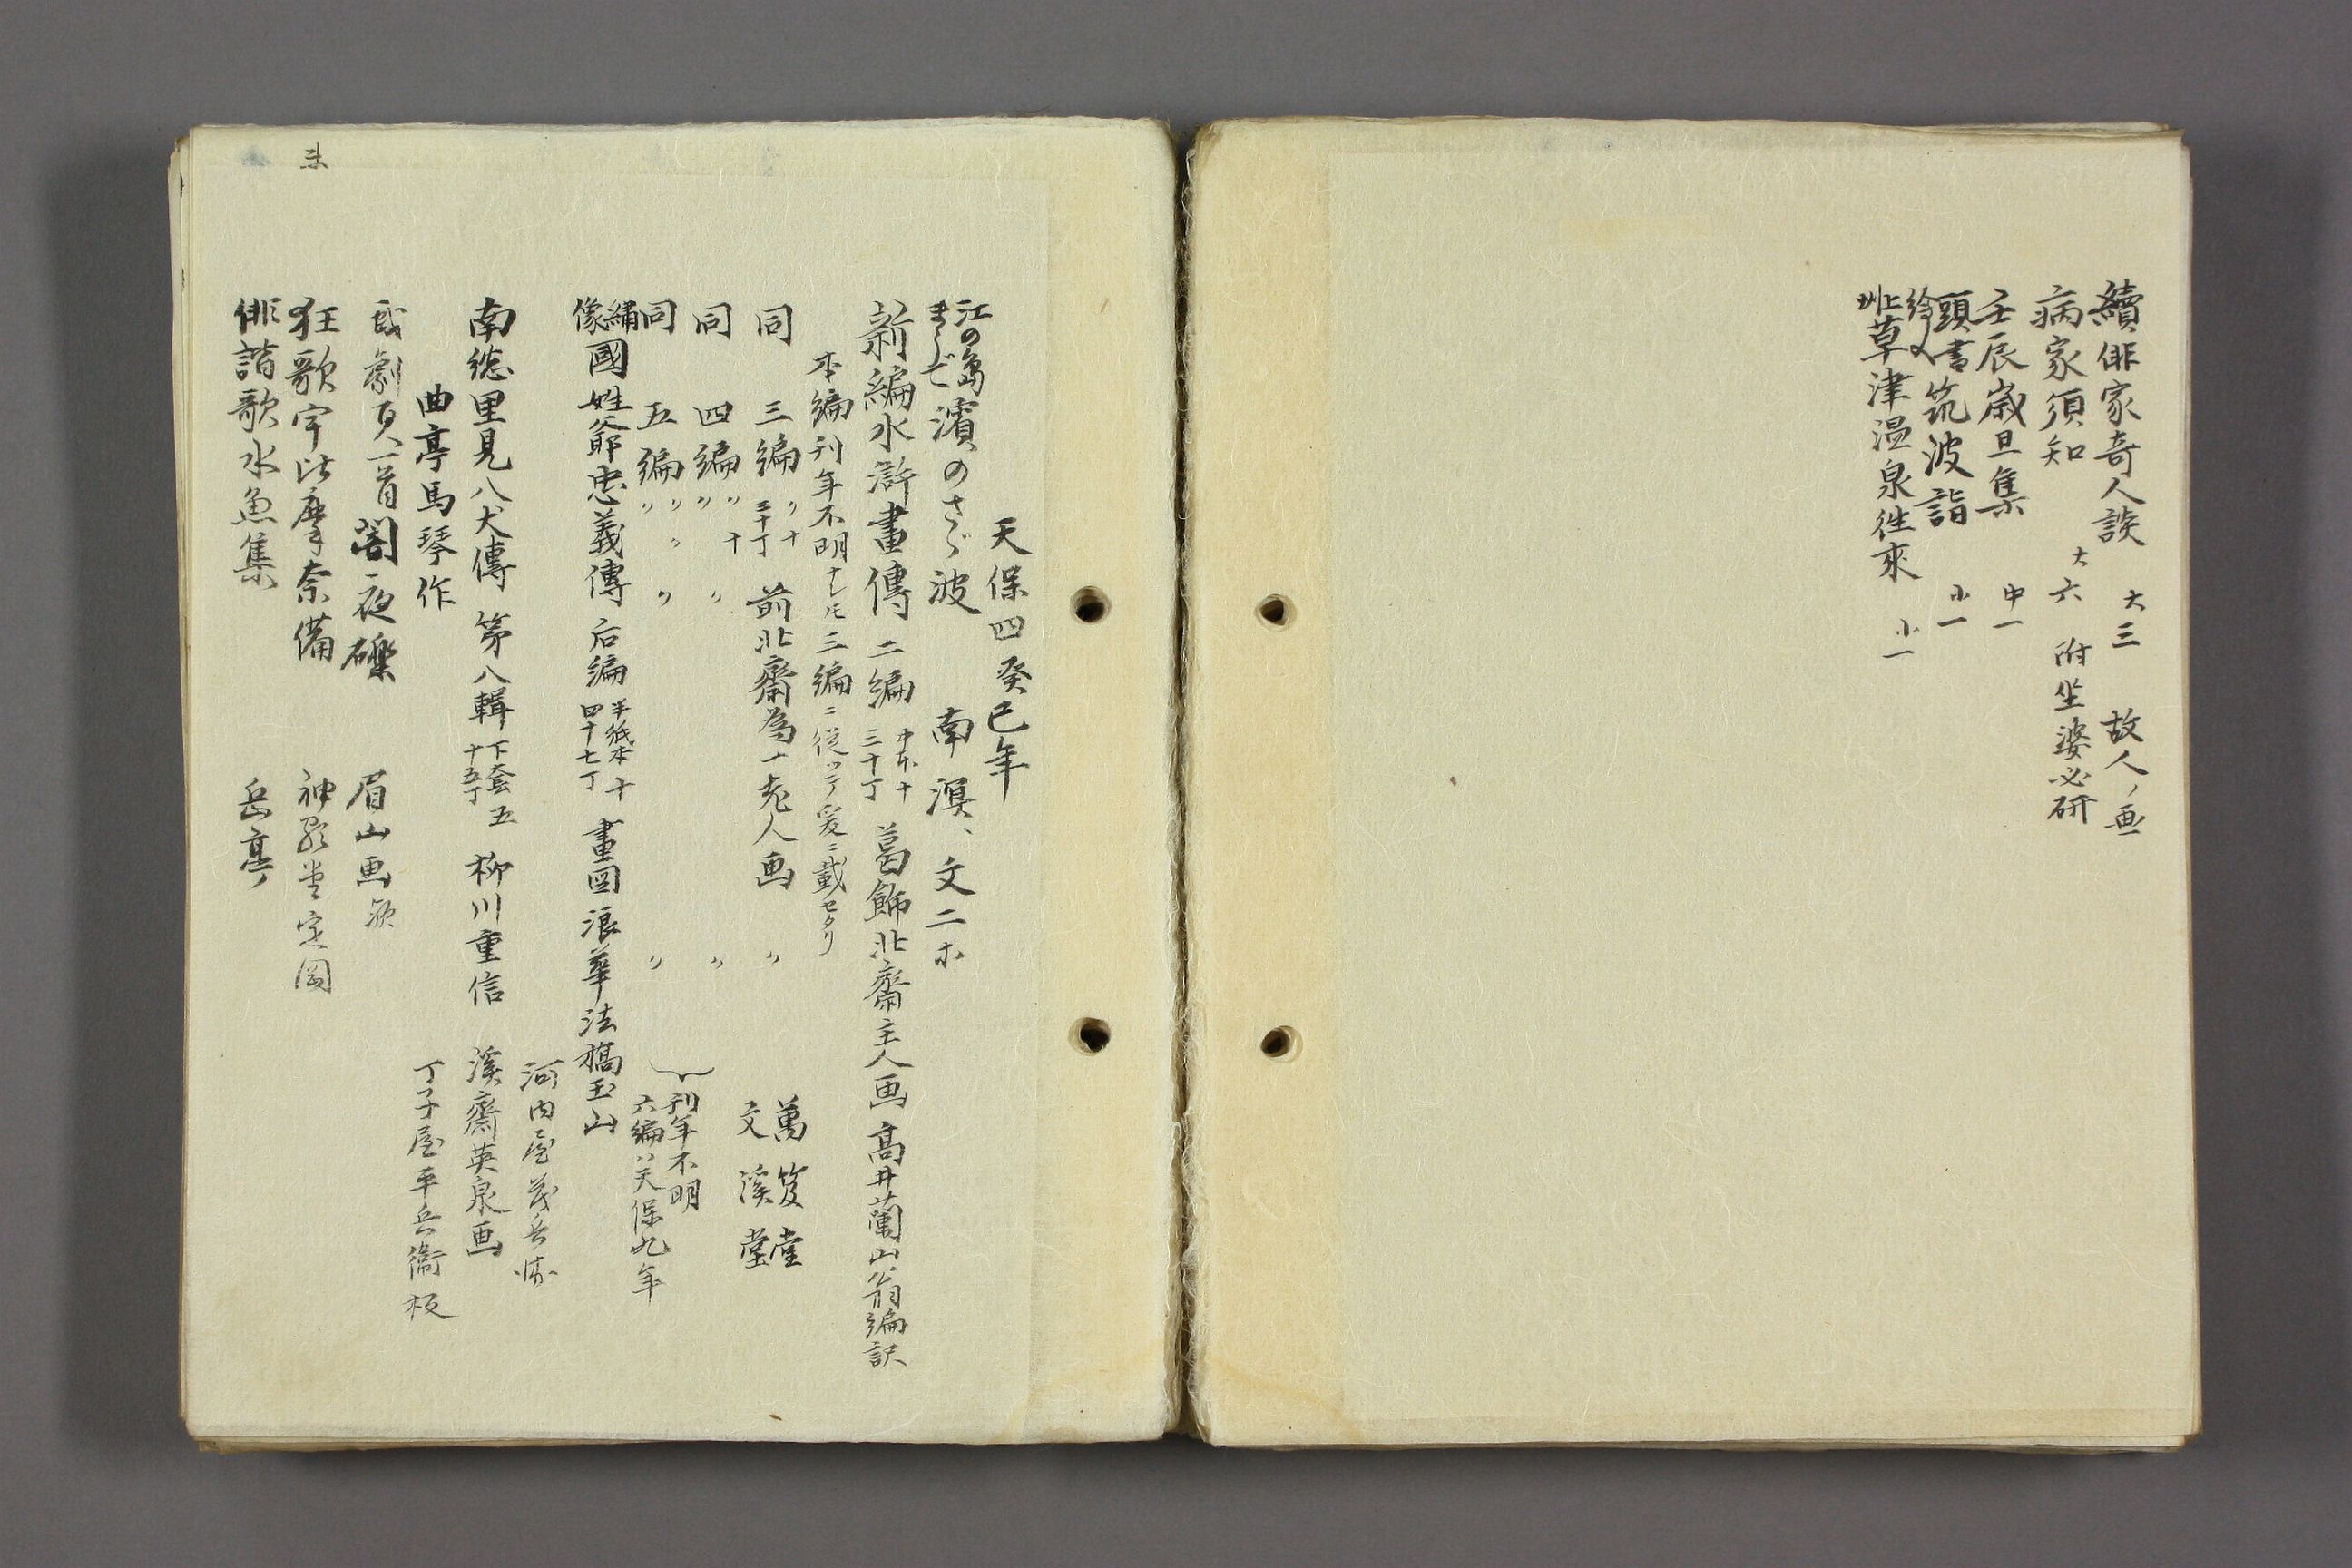 續俳家奇人談 大三 故人画
病家須知 大六 附坐婆必研
壬辰歳旦集 中一
頭書筑波詣 小一
草津温泉徃來 小一
天保四癸巳年
江の島
濱のさゞ波 南溟、文二
新編水滸畫傳 二編 中本十 三十丁 葛飾北齋主人画 高井蘭山翁編訳
本編刊年不明ナレ𪜈三編ニ從ツテ爰ニ載セタリ
同 三編 〃十 三十丁 前北齋為一老人画 〃 萬笈堂 文溪堂
同 四編 〃 〃十 〃 〃
同 五編 〃 〃 〃 〃 〃 刊年不明 六編ハ天保九年
繡像國姓爺忠義傳 后編 半紙本十 四十七丁 畫図 浪華法橋玉山
河内屋茂兵衛
南總里見八犬傳 第八輯 下套五 十五丁 柳川重信 溪齋英泉画
曲亭馬琴作 丁子屋平兵衞板
戯劇百人一首闇夜礫 眉山画
狂歌 奈備 神 定岡
俳諧歌水魚集 岳亭